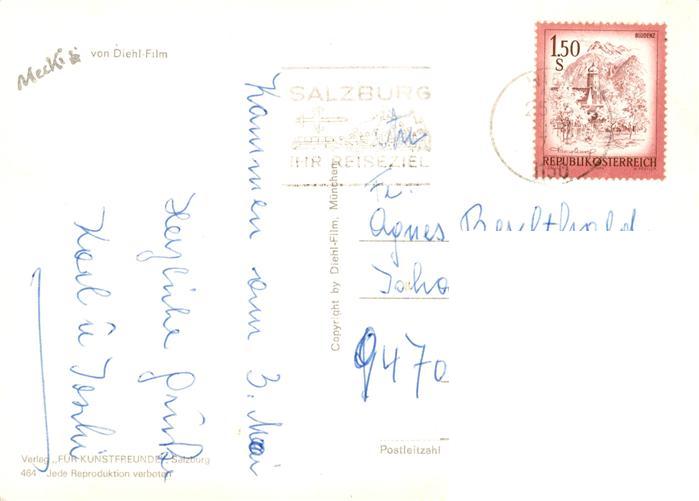 Mecki
von Diehl-Film
SALZBURG
IHR REISEZIEL
1.50
S
BLUDENZ
REPUBLIK ÖSTERREICH
1150
Kommen am 3. Mai
Herzliche Grüße
Karl u
Copyright by Diehl-Film, München
An
Fr.
Agnes
Joha
9470
Postleitzahl
Verlag „FÜR KUNSTFREUNDE" Salzburg
464 Jede Reproduktion verboten